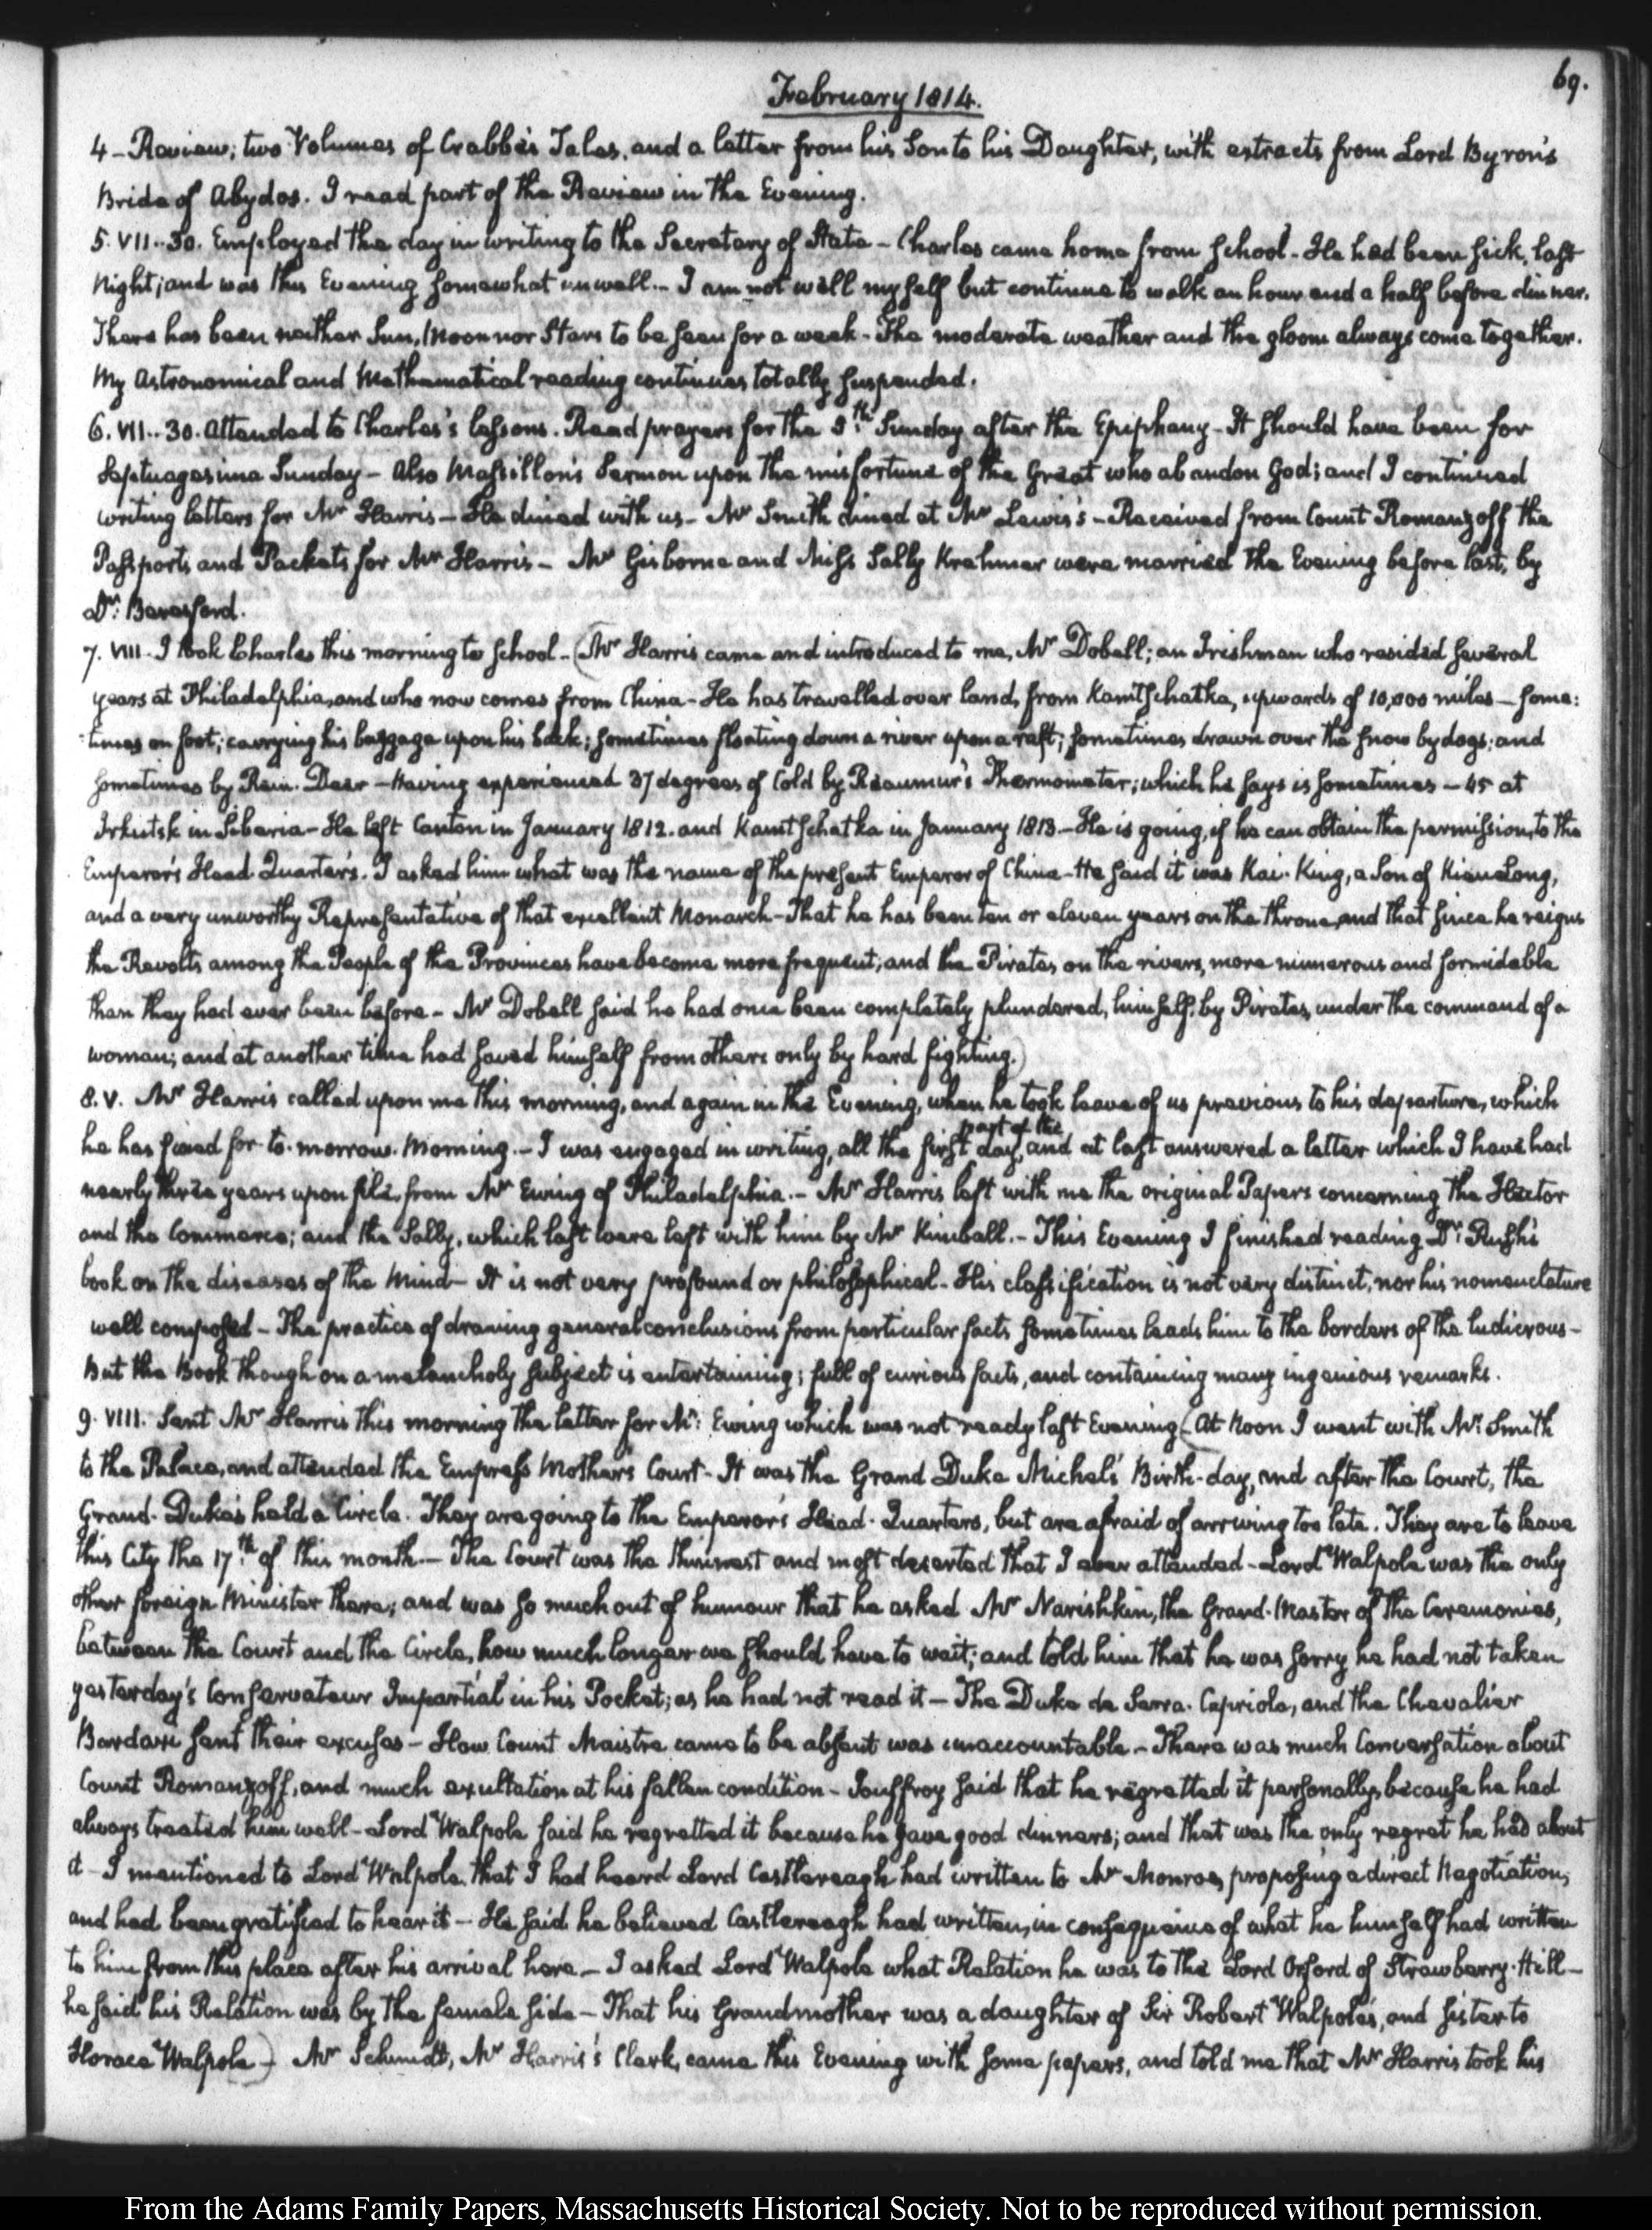 69.
February 1814.
4 - Review; two Volumes of Crabbe's Tales, and a letter from his Son to his Daughter, with extracts from Lord Byron's
Bride of Abydos. I read part of the Review in the Evening.
5. VII..30. Employed the day in writing to the Secretary of State - Charles came home from School - He had been sick, last
Night; and was this Evening somewhat unwell.- I am not well myself but continue to walk an hour and a half before dinner.
There has been neither Sun, Moon nor Stars to be seen for a week - The moderate weather and the gloom always come together.
My Astronomical and Mathematical reading continues totally suspended.
6. VII..30. Attended to Charles's lessons. Read prayers for the 5th. Sunday after the Epiphany - It should have been for
Septuagesima Sunday - Also Massillon's Sermon upon the misfortune of the Great who abandon God; and I continued
writing letters for Mr Harris - He dined with us - Mr Smith dined at Mr Lewis's - Received from Count Romanzoff the
Passports and Packets for Mr Harris - Mr Gisborne and Miss Sally Krehmer were married the Evening before last, by
Dr: Beresford.
7. VIII. I took Charles this morning to School - (Mr Harris came and introduced to me, Mr Dobell; an Irishman who resided several
years at Philadelphia, and who now comes from China - He has travelled over land, from Kamtschatka, upwards of 10,000 miles - some:
:times on foot; carrying his baggage upon his back; sometimes floating down a river upon a raft; sometimes drawn over the snow by dogs; and
sometimes by Rein-Deer - Having experienced 37 degrees of Cold by Reaumur's Thermometer; which he says is sometimes - 45 at
Irkutsk in Siberia - He left Canton in January 1812. and Kamtschatka in January 1813 - He is going, if he can obtain the permission, to the
Emperor's Head-Quarters. I asked him what was the name of the present Emperor of China - He said it was Kai-King, a Son of Kien Long,
and a very unworthy Representative of that excellent Monarch - That he has been ten or eleven years on the throne, and that since he reigns
the Revolts among the People of the Provinces have become more frequent; and the Pirates on the rivers, more numerous and formidable
than they had ever been before - Mr Dobell said he had once been completely plundered, himself, by Pirates, under the command of a
woman; and at another time had saved himself from others only by hard fighting.)
8. V. Mr Harris called upon me this morning, and again in the Evening, when he took leave of us previous to his departure, which
he has fixed for to-morrow-Morning.- I was engaged in writing, all the first part of the day, and at last answered a letter which I have had
nearly three years upon file, from Mr Ewing of Philadelphia.- Mr Harris left with me the original Papers concerning the Hector
and the Commerce; and the Sally, which last were left with him by Mr Kimball.- This Evening I finished reading Dr: Rush's
book on the diseases of the Mind - It is not very profound or philosophical - His classification is not very distinct, nor his nomenclature
well composed - The practice of drawing general conclusions from particular facts sometimes leads him to the borders of the ludicrous -
But the Book though on a melancholy subject is entertaining; full of curious facts, and containing many ingenious remarks.
9. VIII. Sent Mr Harris this morning the letter for Mr: Ewing which was not ready last Evening (At Noon I went with Mr Smith
to the Palace, and attended the Empress Mother's Court - It was the Grand Duke Michel's Birth-day, and after the Court, the
Grand-Dukes held a Circle. They are going to the Emperor's Head-Quarters, but are afraid of arriving too late. They are to leave
this City the 17th of this month - The Court was the thinnest and most deserted that I ever attended - Lord Walpole was the only
other foreign Minister there; and was so much out of humour that he asked Mr Narishkin, the Grand-Master of the Ceremonies,
between the Court and the Circle, how much longer we should have to wait; and told him that he was sorry he had not taken
yesterday's Conservateur Impartial in his Pocket; as he had not read it - The Duke de Serra-Capriola, and the Chevalier
Bardaxi sent their excuses - How Count Maistre came to be absent was unaccountable - There was much Conversation about
Count Romanzoff, and much exultation at his fallen condition - Jouffroy said that he regretted it personally, because he had
always treated him well - Lord Walpole said he regretted it because he gave good dinners; and that was the only regret he had about
it - I mentioned to Lord Walpole, that I had heard Lord Castlereagh had written to Mr Monroe, proposing a direct Negotiation,
and had been gratified to hear it - He said he believed Castlereagh had written, in consequence of what he himself had written
to him from this place after his arrival here - I asked Lord Walpole what Relation he was to the Lord Orford of Strawberry-Hill -
he said his Relation was by the female side - That his Grandmother was a daughter of Sir Robert Walpole's, and sister to
Horace Walpole -) Mr Schmidt, Mr Harris's Clerk, came this Evening with some papers, and told me that Mr Harris took his
From the Adams Family Papers, Massachusetts Historical Society. Not to be reproduced without permission.